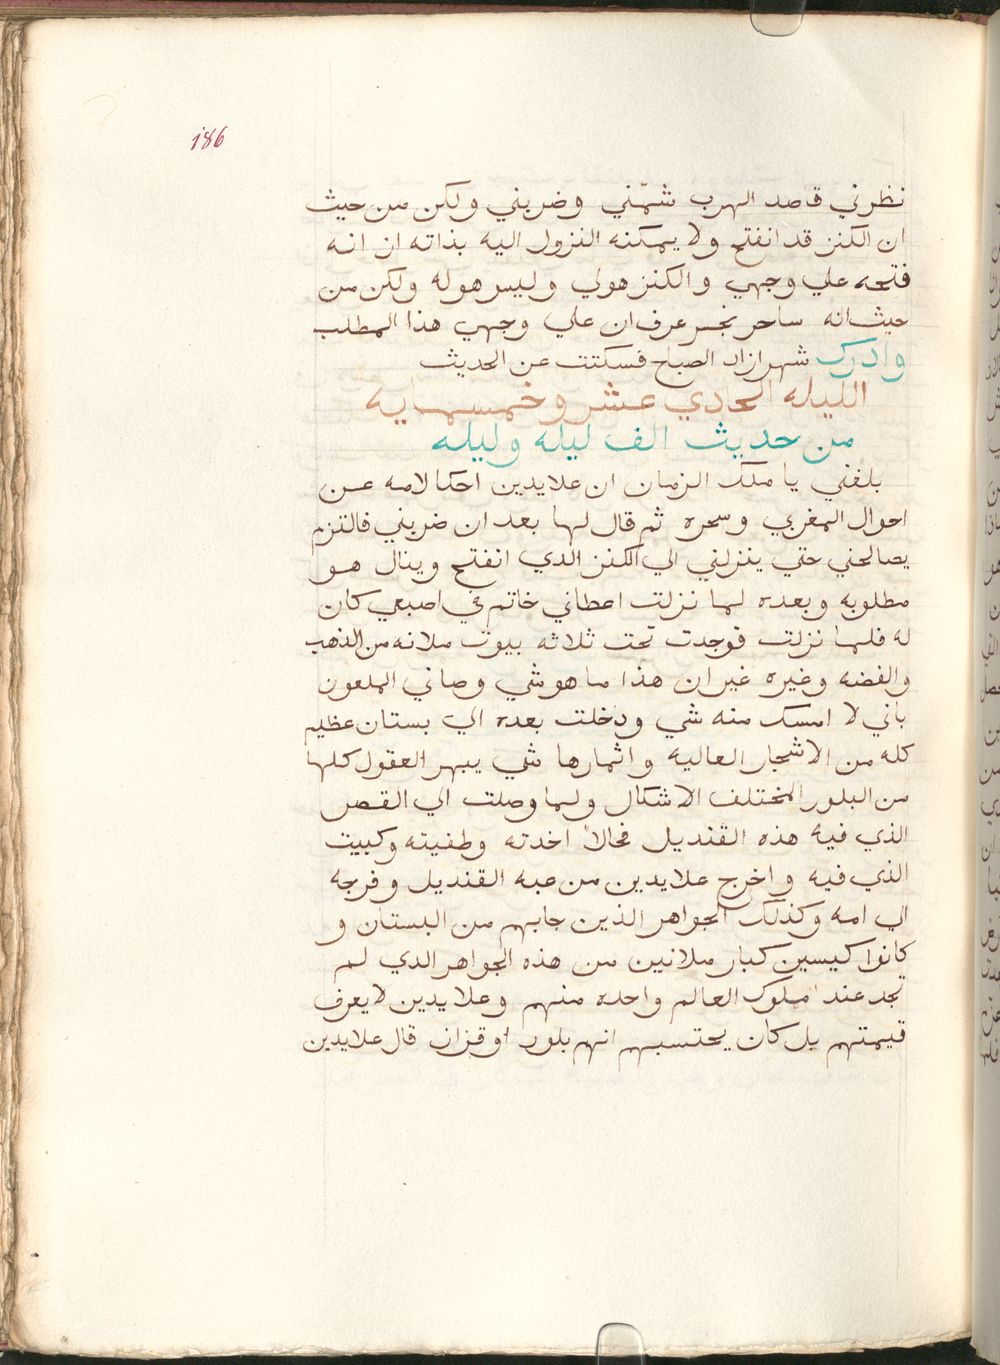 186
نظرني قاصد الهرب شتمني وضربني ولكن من حيث
ان الكنز قد انفتح ولا يمكنه النزول اليه بذاته از انه
فتحه علي وجهي والكنز هولي وليس هوله ولكن من
حيث انه ساحر نجس عرف ان علي وجهي هذا المطلب
وادرك شهرازاد الصباح فسكتت عن الحديث
الليله الحادي عشر وخمسمايه
من حديث الف ليله وليله
بلغني يا ملك الزمان ان علايدين احكا لامه عن
احوال المغربي وسحره ثم قال لها بعد ان ضربني فالتزم
يصالحني حتي ينزلني الي الكنز الدي انفتح وينال هو
مطلوبه وبعده لما نزلت اعطاني خاتم في اصبعي كان
له فلما نزلت فوجدت تحت ثلاثه بيوت ملانه من الذهب
والفضه وغيره غير ان هذا ما هو شي وصاني الملعون
باني لا امسك منه شي ودخلت بعده الي بستان عظيم
كله من الاشجار العاليه واثمارها شي يبهر العقول كلها
من البلور المختلف الاشكال ولما وصلت الي القصر
الذي فيه هذه القنديل فحالاً اخدته وطفيته وكبيت
الذي فيه واخرج علايدين من عبه القنديل وفرجه
الي امه وكذلك الجواهر الذين جابهم من البستان و
كانوا كيسين كبار ملانين من هذه الجواهر الدي لم
تجد عند ملوك العالم واحده منهم وعلايدين لا يعرف
قيمتهم بل كان يحتسبهم انهم بلور او قزاز قال علايدين